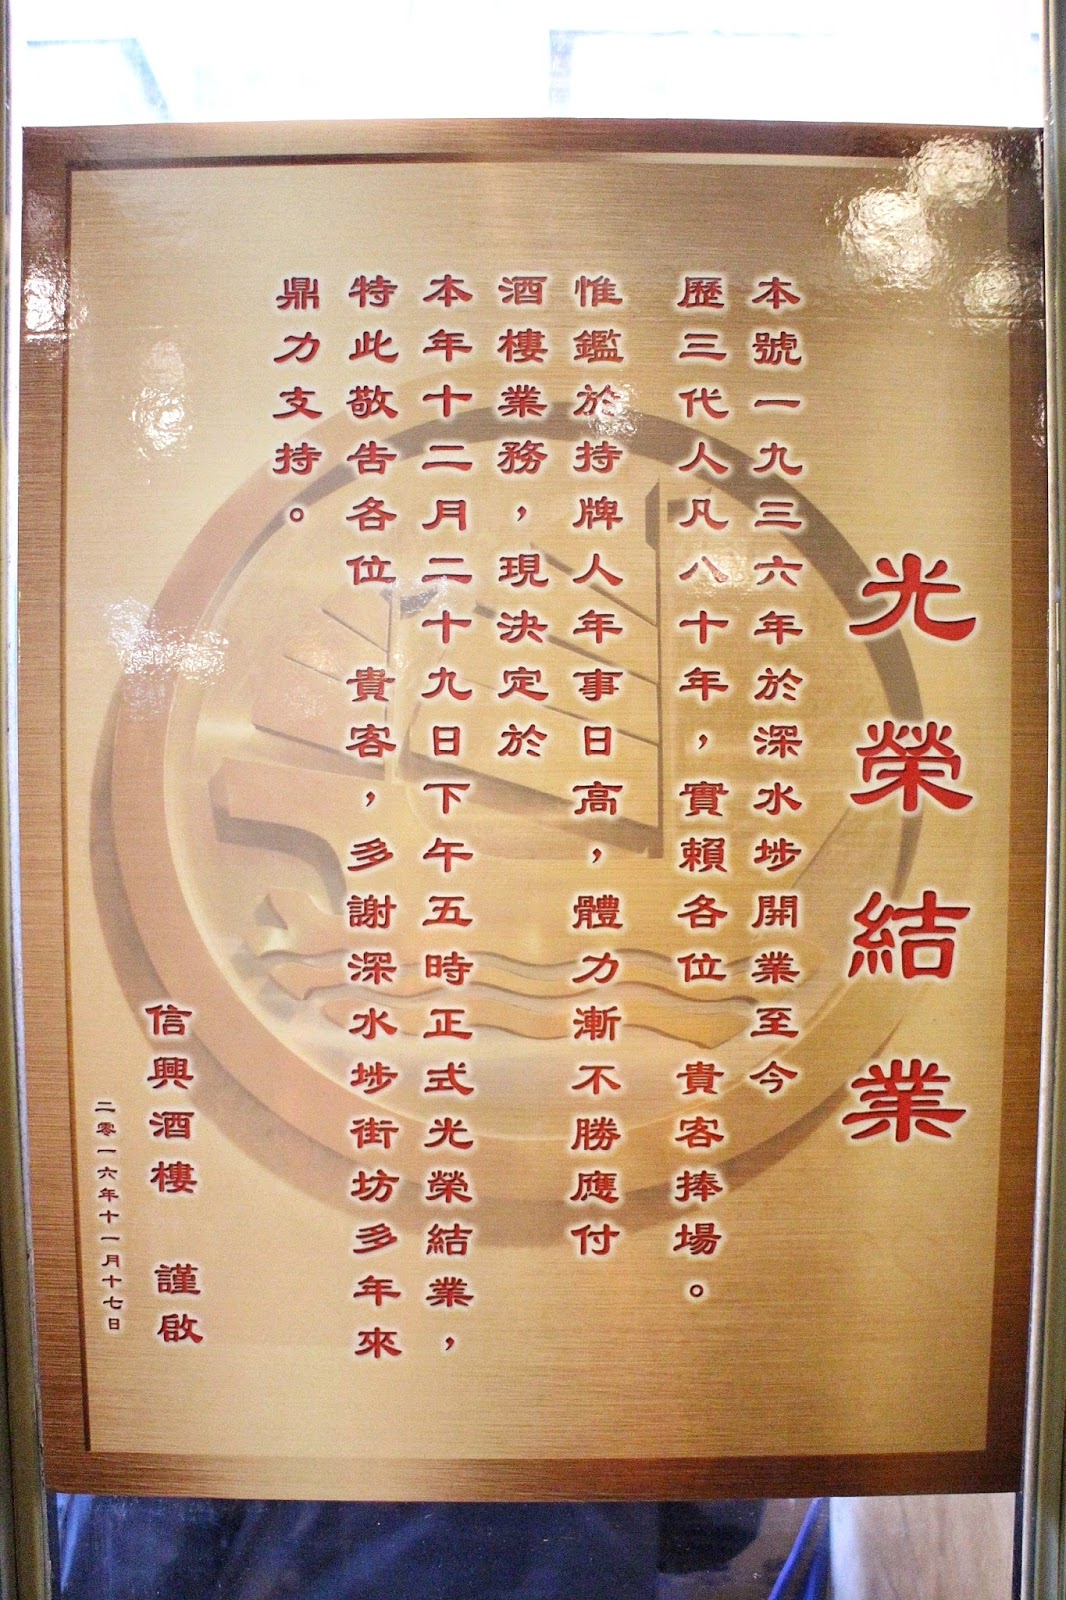 光榮結業
本號一九三六年於深水埗開業至今
歷三代人凡八十年，實賴各位　貴客捧場。
惟鑑於持牌人年事日高，體力漸不勝應付
酒樓業務，現決定於
本年十二月二十九日下午五時正式光榮結業，
特此敬告各位　貴客，多謝深水埗街坊多年來
鼎力支持。
信興酒樓　謹啟
二零一六年十一月十七日